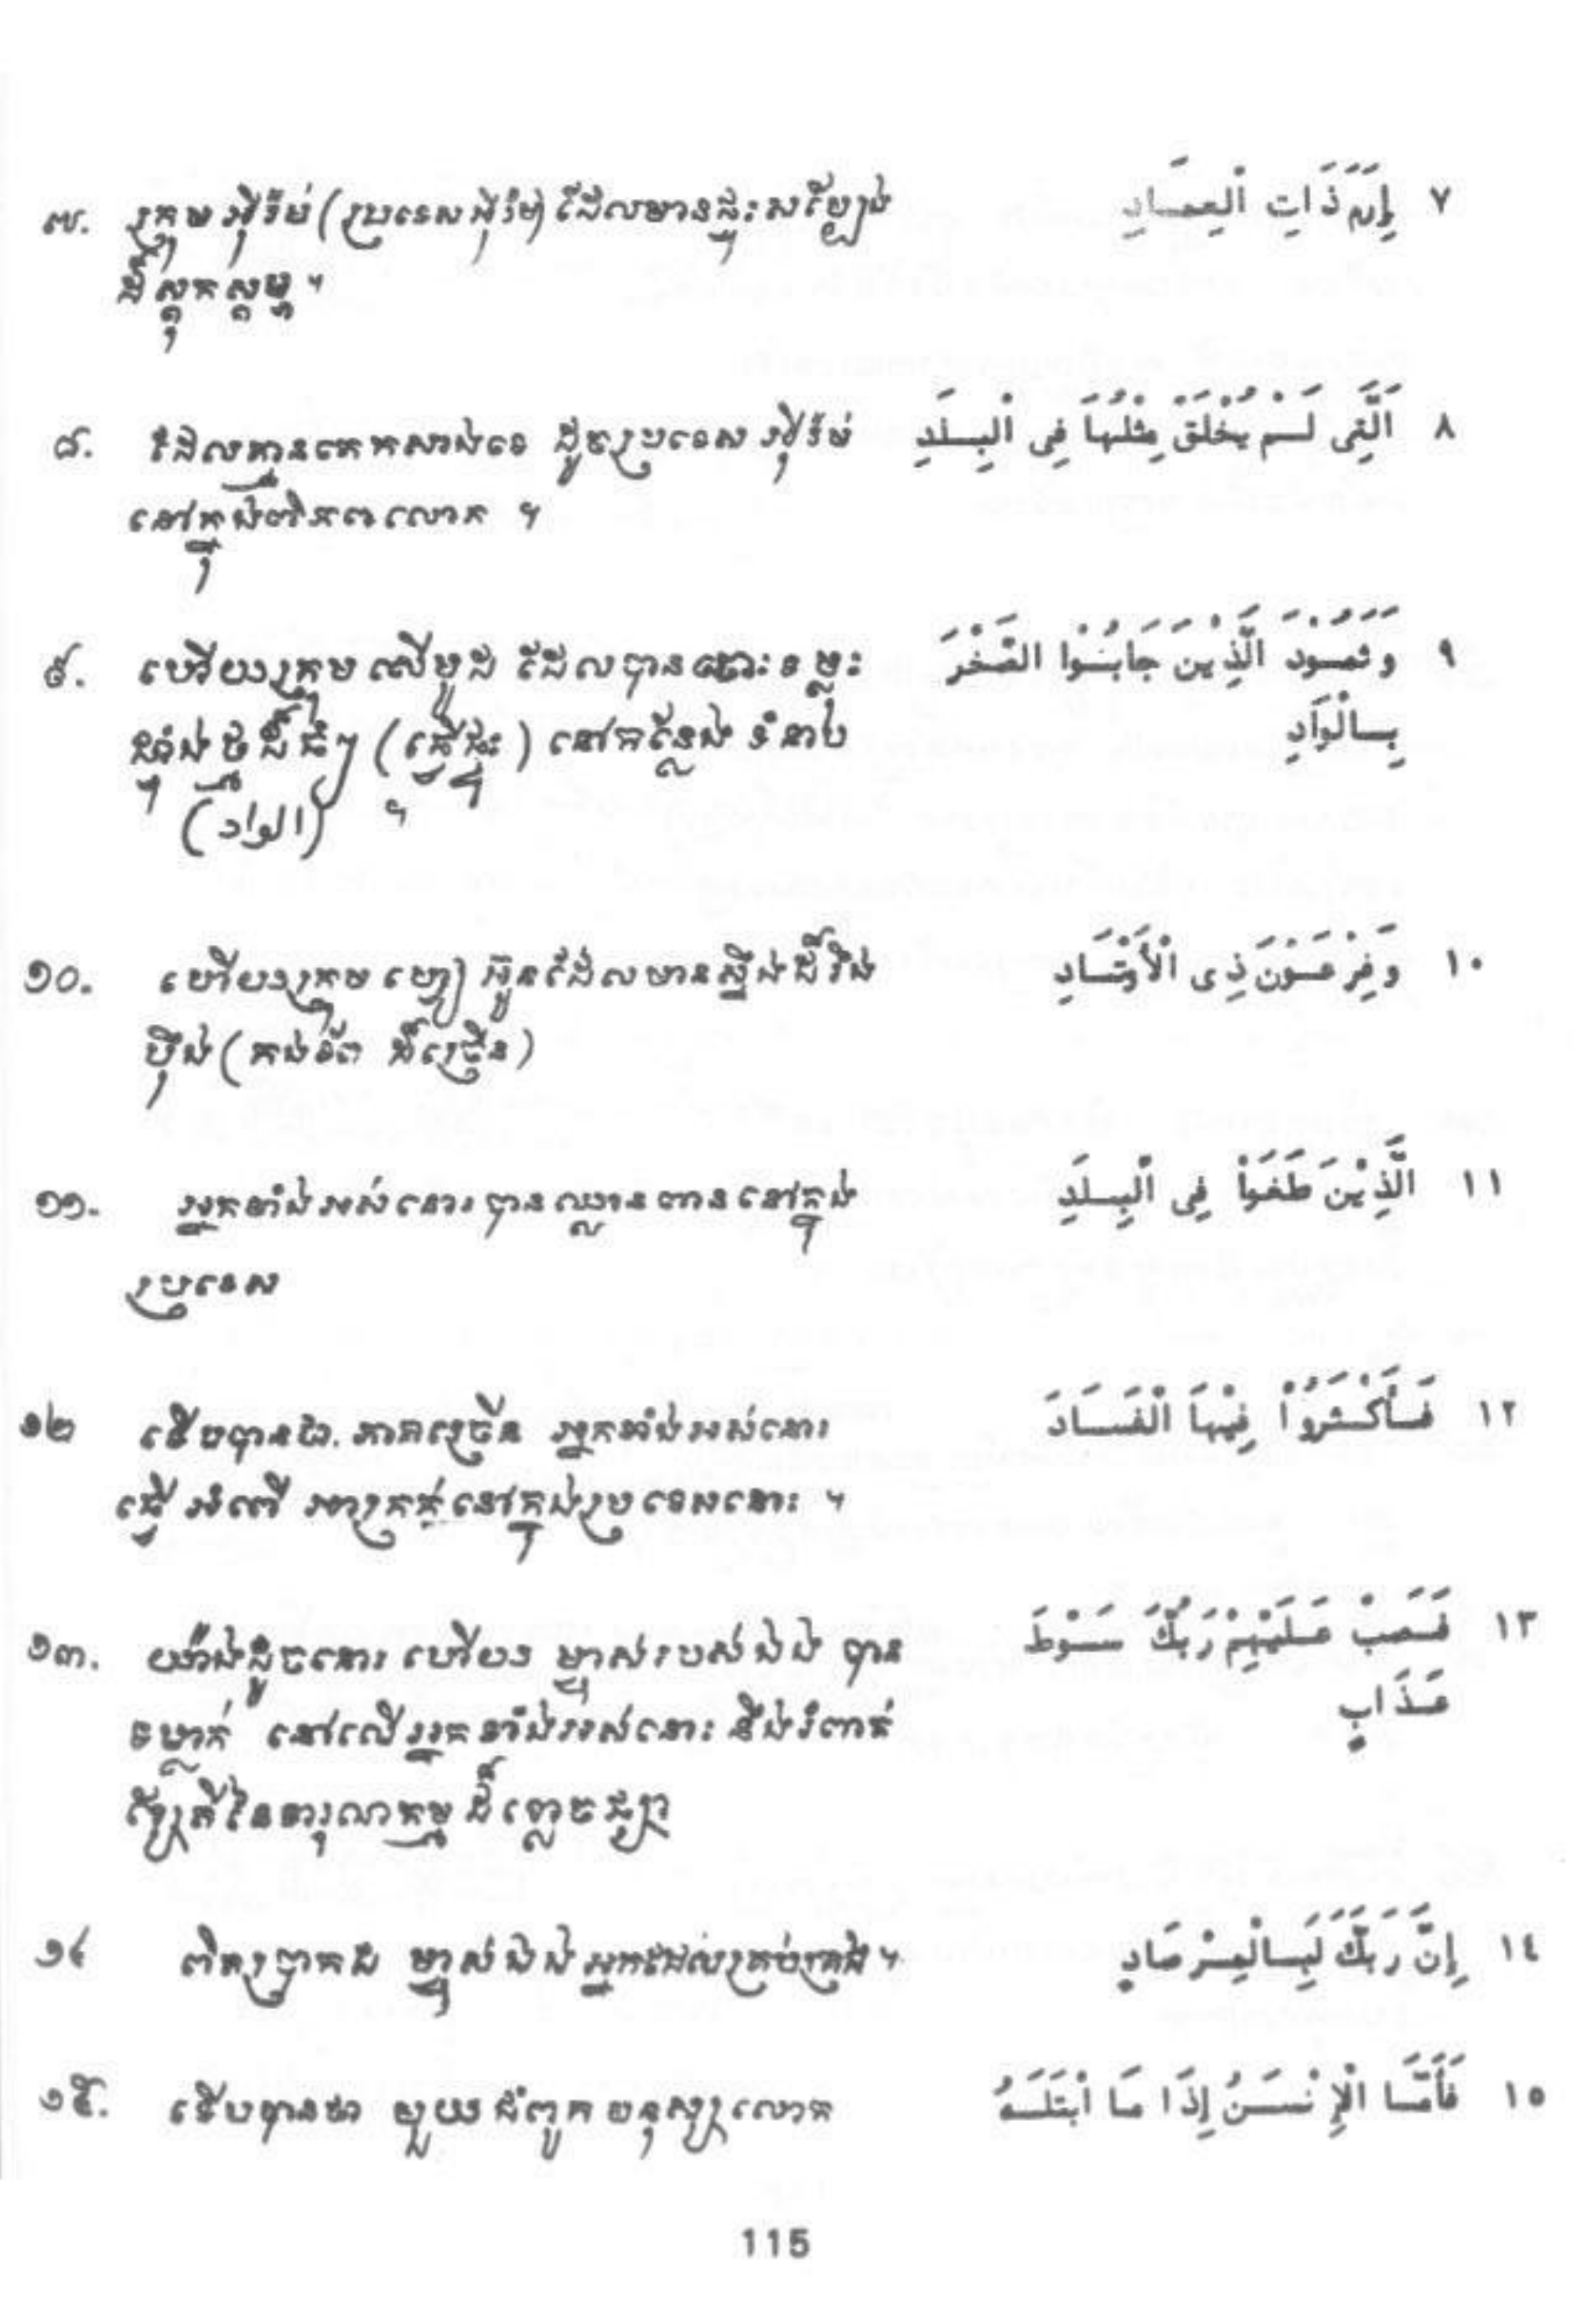 ៧. ក្រុមអ៊ីរ៉ំម់ (ប្រទេសអ៊ីរ៉ំម) ដែលមានផ្ទះសម្បែង
ដ៏ស្តុកស្តម្ភ ។
إِرَمَ ذَاتِ الْعِمَادِ ٧
៨. ដែលគ្មានគេកសាងទេ ដូចប្រទេស អ៊ីរ៉ំម់
នៅក្នុងពិភពលោក ។
اَلَّتِى لَمْ يُخْلَقْ مِثْلُهَا فِى الْبِلَدِ ٨
៩. ហើយក្រុម សើមូដ ដែលបានចោះទម្លុះ
ដុំថ្មដ៏ធំៗ (ធ្វើផ្ទះ) នៅកន្លែង ទំនាប
(الواد) ។
وَثَمُوْدَ الَّذِيْنَ جَابُوْا الصَّخْرَ ٩
بِالْوَادِ
១០. ហើយក្រុម ហ្វៀរអ៊ូនដែលមានស្នឹងដ៏រឹង
ប៉ឹង (កងទ័ព ដ៏ច្រើន)
وَفِرْعَوْنَ ذِى الْأَوْتَادِ ١٠
១១. អ្នកទាំងអស់នោះ បានឈ្លានពាននៅក្នុង
ប្រទេស
الَّذِيْنَ طَغَوْا فِى الْبِلَدِ ١١
១២ ទើបបានជា ភាគច្រើន អ្នកទាំងអស់នោះ
ធ្វើ អំពើ អាក្រក់នៅក្នុងប្រទេសនោះ ។
فَأَكْثَرُوْا فِيْهَا الْفَسَادَ ١٢
១៣. យ៉ាងដូចនោះ ហើយ ម្ចាស់របស់ឯង បាន
ទម្លាក់ នៅលើអ្នកទាំងអស់នោះ នឹងរំពាត់
នៃទារុណកម្ម ដ៏
فَصَبَّ عَلَيْهِمْ رَبُّكَ سَوْطَ ١٣
عَذَابٍ
១៤ ពិតប្រាកដ ម្ចាស់ឯង អ្នកដែលគ្រប់គ្រង ។
إِنَّ رَبَّكَ لَبِالْمِرْصَادِ ١٤
១៥. ទើបបានជា មួយ ជំពូក មនុស្សលោក
فَأَمَّا الْإِنْسَنُ إِذَا مَا ابْتَلَهُ ١٥
115